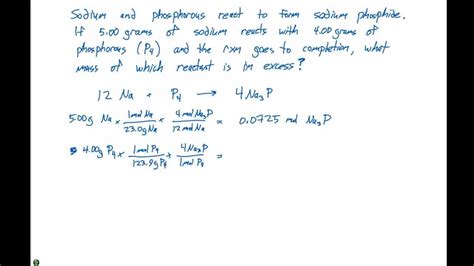 Sodium and phosphorous react to form sodium phosphide.
If 5.00 grams of sodium reacts with 4.00 grams of
phosphorous (P₄) and the rxn goes to completion, what
mass of which reactant is in excess?
12 Na + P₄ → 4 Na₃P
5.00g Na × 1 mol Na / 23.0g Na × 4 mol Na₃P / 12 mol Na = 0.0725 mol Na₃P
4.00g P₄ × 1 mol P₄ / 123.9g P₄ × 4 Na₃P / 1 mol P₄ =